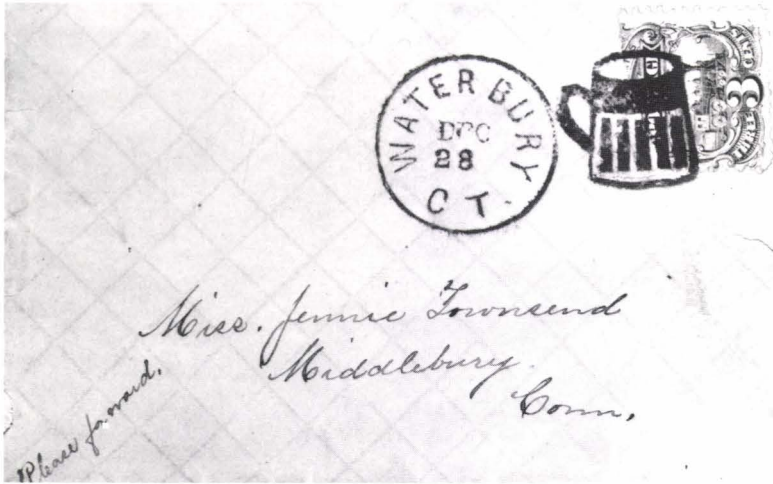 WATERBURY
DEC
28
CT.
3
Miss. Jennie Townsend
Middlebury.
Conn,
Please forward.